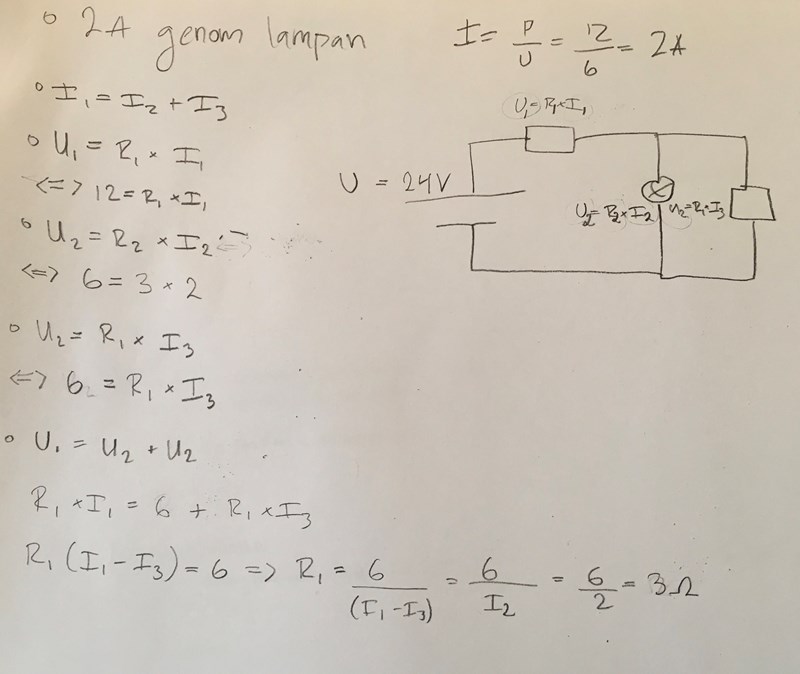 2A genom lampan
I = P/U = 12/6 = 2A
I₁ = I₂ + I₃
U₁ = R₁ × I₁
<=> 12 = R₁ × I₁
U₂ = R₂ × I₂
<=> 6 = 3 × 2
U₂ = R₁ × I₃
<=> 6 = R₁ × I₃
U₁ = U₂ + U₂
R₁ × I₁ = 6 + R₁ × I₃
R₁ (I₁ - I₃) = 6 => R₁ = 6/(I₁ - I₃) = 6/I₂ = 6/2 = 3Ω
U₁ = R₁ × I₁
U = 24V
U₂ = R₂ × I₂
U₂ = R₁ × I₃